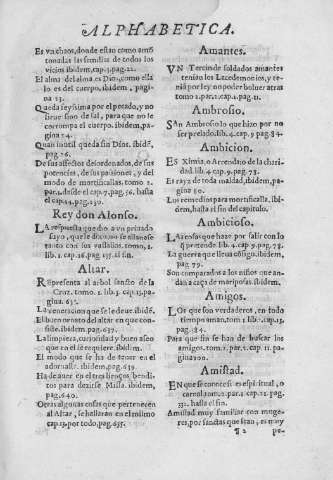 ALPHABETICA.
Es vn chaos, donde estan como amõ
tonadas las semillas de todos los
vicios ibidem, cap. 3. pag. 22.
El alma del alma es Dios, como ella
lo es del cuerpo, ibidem, pagi
na 23.
Queda feyssima por el pecado, y no
siruе sino de sal, para que no le
corrompa el cuerpo. ibidem, pa
gina 24.
Quan inutil queda sin Dios. ibidẽ,
pag. 26.
De sus affectos desordenados, de sus
potencias, de sus passiones, y del
modo de mortificallas. tomo 2.
par. desde el cap. 7. pag. 56. hasta
el cap. 14. pag. 130.
Rey don Alonso.
LA respuesta que dio a vn priuado
suyo, que le dixo se allanasse
tanto con sus vassallos. tomo 1.
lib. 3. cap. 16. pag. 137. al fin.
Altar.
REpresenta al arbol sancto de la
Cruz. tomo. 2. lib. 3. cap. 13. pa
gina. 635.
La veneracion que se le deue. ibidẽ.
El buen ornato del altar en que con
siste. ibidem, pag. 637.
La limpieza, curiosidad y buen aseo
que en el se requiere. ibidem.
El modo que se ha de tener en el
adornalle. ibidem, pag. 639.
Ha de auer en el tres lienços bendi
tos para dezirse Missa. ibidem,
pag. 640.
Otras algunas cosas que pertenecen
al Altar, se hallaran en el mismo
cap. 13. por todo, pag. 635.
Amantes.
VN Tercio de soldados amantes
tenian los Lacedemonios, y te
nia por ley no poder boluer atras
tomo 2. par. 2. cap. 4. pag. 11.
Ambrosio.
SAn Ambrosio lo que hizo por no
ser prelado. lib. 4. cap. 9. pag. 84
Ambicion.
ES Ximia, o Arrendajo de la chari
dad. lib. 4. cap. 9. pag. 78.
Es raya de toda maldad, ibidem, pa
gina 80.
Los remedios para mortificalla, ibi
dem, hasta el fin del capitulo.
Ambicioso.
LAs cosas que haze por salir con lo
q̃ pretende. lib. 4. cap. 9. pag. 78.
La guerra que lleua cõsigo, ibidem,
pag. 79.
Son comparados a los niños que an
dan a caça de mariposas. ibidem.
Amigos.
LOs que son verdaderos, en todo
tiempo aman. tom 1 lib. cap. 13.
pag. 184.
Para que fin se han de buscar los
amigos. tom. 2. par. 2. cap. 11. pa
gina 100.
Amistad.
EN que se conoce si es espiritual, o
carnal. tom. 2. par. 2. cap. 21. pag.
332. hasta el fin.
Amistad muy familiar con muge-
res, por sanctas que sean, es muy
¶ 2 pe-